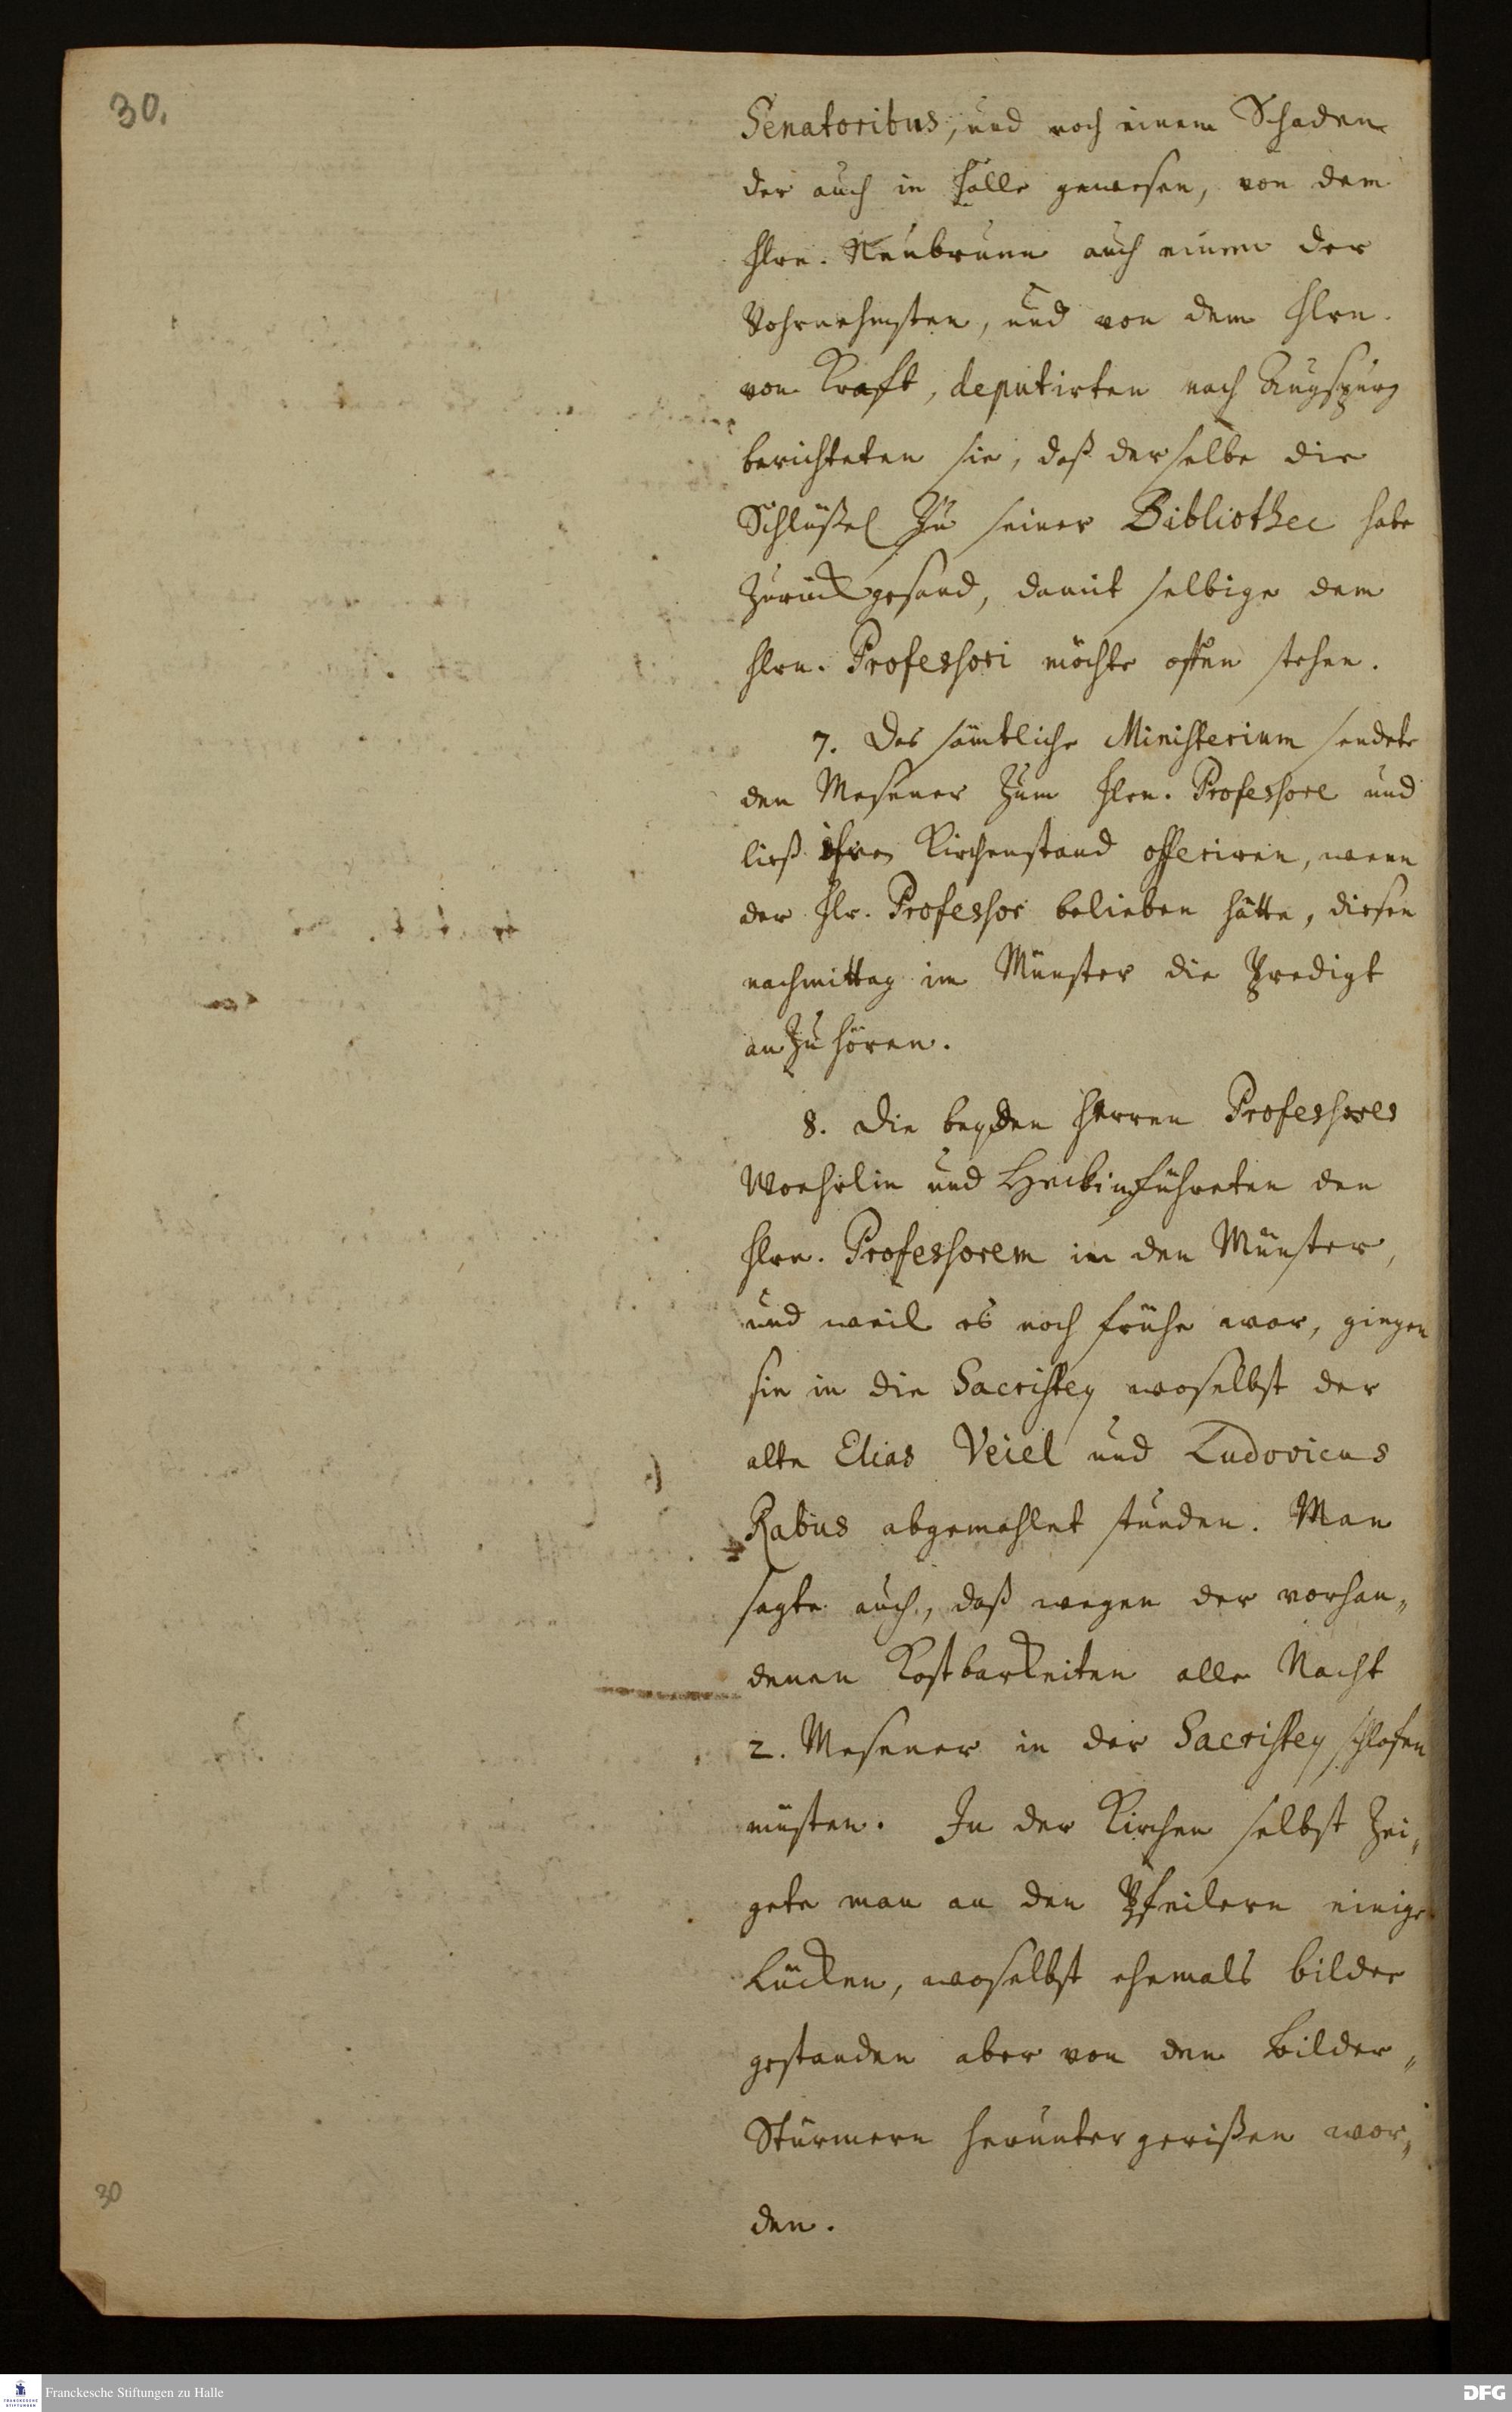 30.
Senatoribus, und noch einem Schaden
der auch in Halle gewesen, von dem
Hrn. Neubrunn auch einem der
Vohrnehmsten, und von dem Hrn.
von Krafft, deputirten nach Augspurg
berichteten sie, daß derselbe die
Schlüßel zu seiner Bibliothec habe
zurück gesand, damit selbige dem
Hrn. Professori möchte offen stehen.
7. Das sämtliche Ministerium sendete
den Mesener zum Hrn. Professore und
ließ ihren Kirchenstand offeriren, wenn
der Hr. Professor belieben hätte, diesen
nachmittag im Münster die Predigt
anzuhören.
8. Die beyden Herren Professores
Woehrlin und führeten den
Hrn. Professorem in den Münster,
und weil es noch frühe war, giengen
sie in die Sacristey woselbst der
alte Elias Veiel und Ludovicus
Rabus abgemahlet stunden. Man
sagte auch, daß wegen der vorhan„
denen Kostbarkeiten alle Nacht
2. Mesener in der Sacristey schlafen
müsten. In der Kirchen selbst zei„
gete man an den Pfeilern einige
Lücken, woselbst ehemals bilder
gestanden aber von den Bilder„
Stürmern herunter gerißen wor„
den.
30
Franckesche Stiftungen zu Halle
DFG